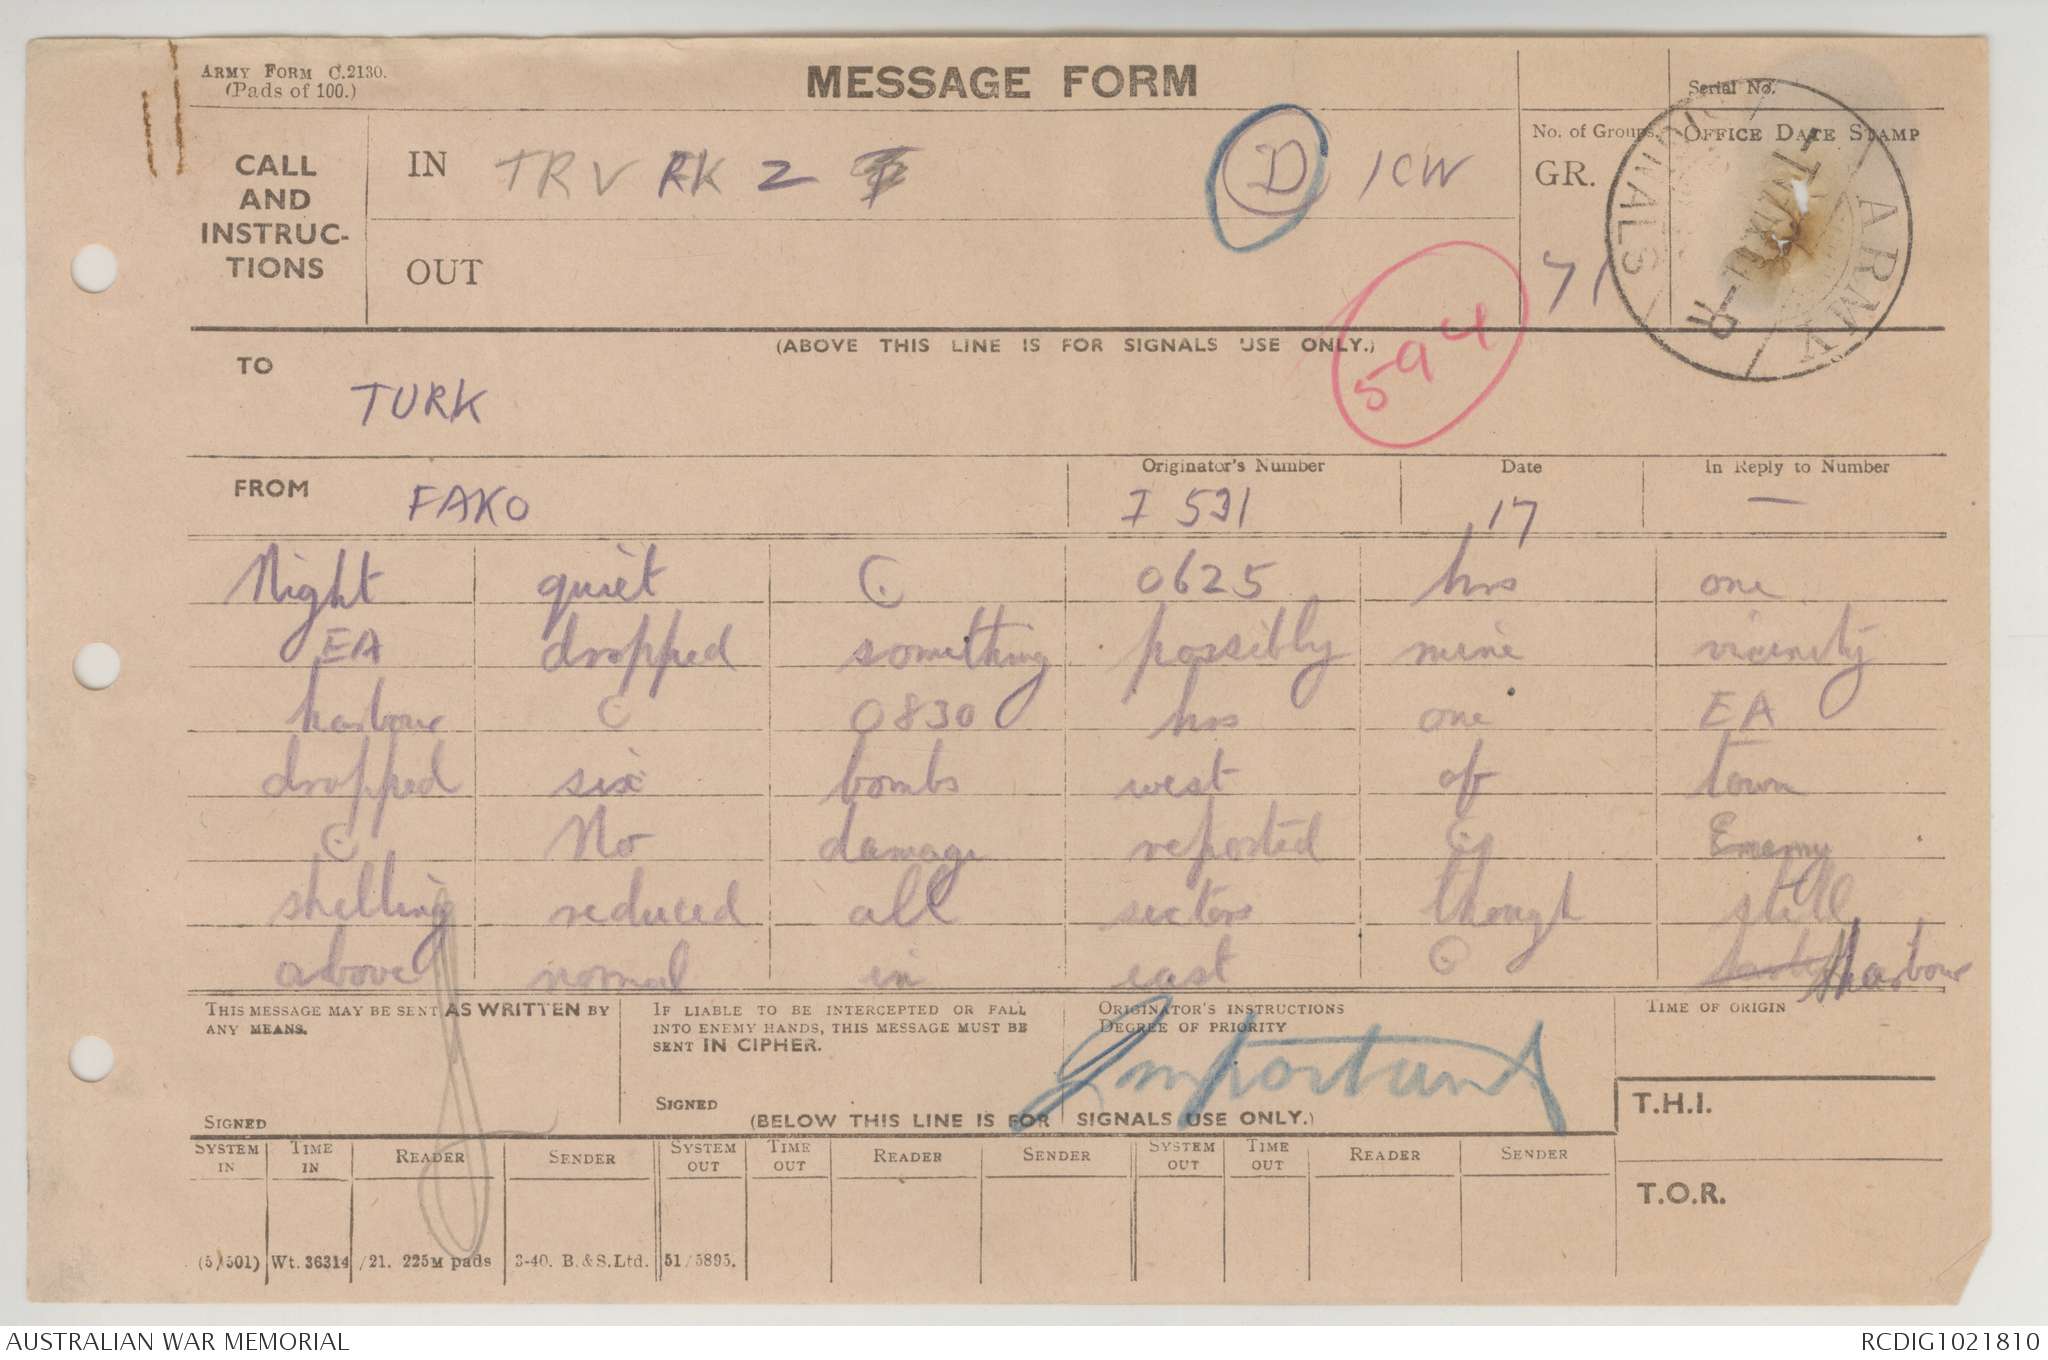 ARMY FORM C.2130.
(Pads of 100.)
MESSAGE FORM
Serial No.
CALL AND INSTRUC-TIONS
IN TRV RK 2 D ICW
No. of Groups. OFFICE DATE STAMP
GR.
71
OUT
ARMY SIGNALS
594
(ABOVE THIS LINE IS FOR SIGNALS USE ONLY.)
TO TURK
FROM FAKO
Originator's Number Date In Reply to Number
I 531 17 —
Night quiet (.) 0625 hrs one
EA dropped something possibly mine vicinity
harbour (.) 0830 hrs one EA
dropped six bombs west of town
(.) No damage reported (.) Enemy
shelling reduced all sectors though still
above normal in east (.) harbour
THIS MESSAGE MAY BE SENT AS WRITTEN BY ANY MEANS.
SIGNED
IF LIABLE TO BE INTERCEPTED OR FALL INTO ENEMY HANDS, THIS MESSAGE MUST BE SENT IN CIPHER.
SIGNED
ORIGINATOR'S INSTRUCTIONS
DEGREE OF PRIORITY
Important
TIME OF ORIGIN
T.H.I.
(BELOW THIS LINE IS FOR SIGNALS USE ONLY.)
SYSTEM IN TIME IN READER SENDER SYSTEM OUT TIME OUT READER SENDER SYSTEM OUT TIME OUT READER SENDER
T.O.R.
(5/501) Wt. 36314/21. 225M pads 3-40. B. & S. Ltd. 51/5895.
AUSTRALIAN WAR MEMORIAL
RCDIG1021810